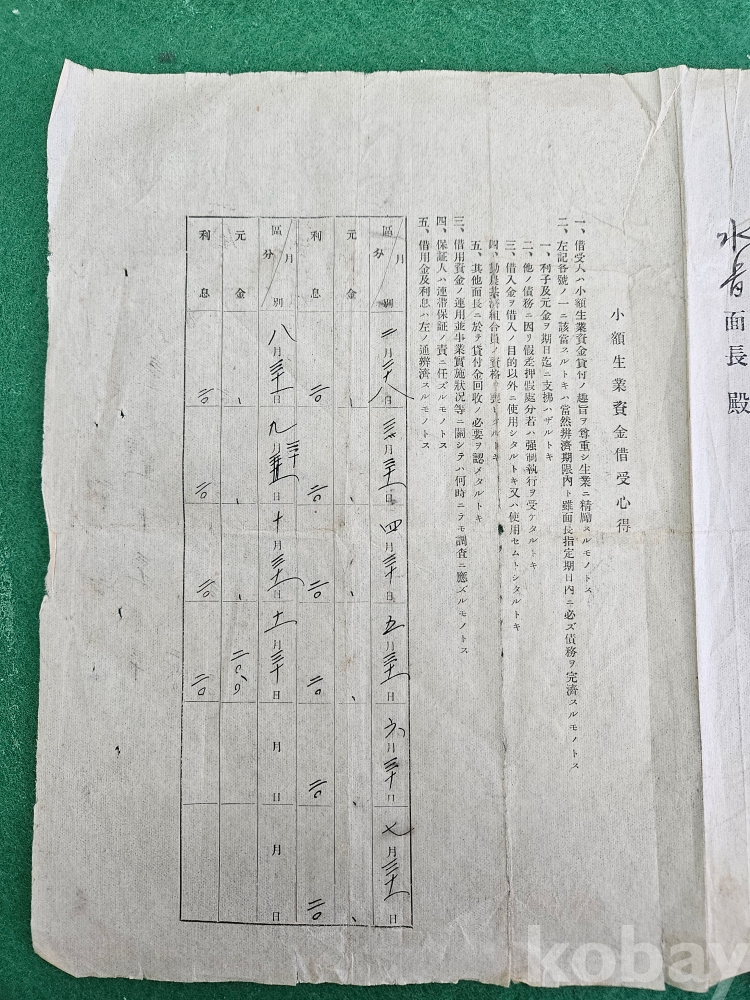 面長 殿
小額生業資金借受心得
一、借受人ハ小額生業資金貸付ノ趣旨ヲ尊重シ生業ニ精勵スルモノトス
二、左記各號ノ一ニ該當スルトキハ當然辨濟期限內ト雖面長指定期日內ニ必ズ債務ヲ完濟スルモノトス
一、利子及元金ヲ期日迄ニ支拂ハザルトキ
二、他ノ債務ニ因リ假差押假處分若ハ強制執行ヲ受ケタルトキ
三、借入金ヲ借入ノ目的以外ニ使用シタルトキ又ハ使用セムトシタルトキ
四、勸農共濟組合員ノ資格ヲ喪ヒタルトキ
五、其他面長ニ於テ貸付金回收ノ必要ヲ認メタルトキ
三、借用資金ノ運用並事業實施狀況等ニ關シテハ何時ニテモ調査ニ應ズルモノトス
四、保証人ハ連帶保証ノ責ニ任ズルモノトス
五、借用金及利息ハ左ノ通辨濟スルモノトス
區分 月別 二月二十八日 三月三十一日 四月三十日 五月三十一日 六月三十日 七月三十一日
元金
利息 二〇 二〇 二〇 二〇 二〇 二〇
區分 月別 八月三十一日 九月三十日 十月三十一日 十一月三十日 月 日 月 日
元金
利息 二〇 二〇 二〇 二〇
kobay